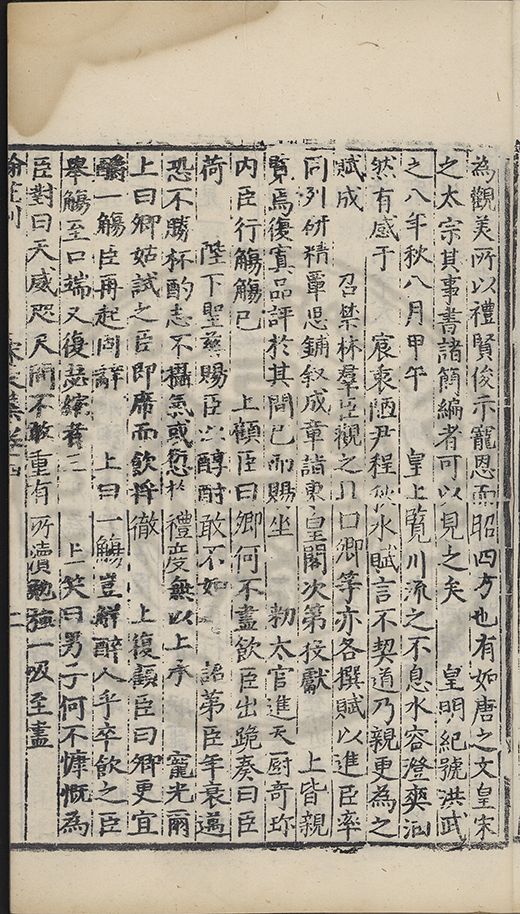 為觀美所以禮賢俊示寵恩而昭四方也有如唐之文皇宋
之太宗其事書諸簡編者可以見之矣　皇明紀號洪武
之八年秋八月甲午　皇上覽川流之不息水容澄爽油
然有感于　宸衷陋尹程秋水賦言不契道乃親更為之
賦成　召禁林羣臣觀之且曰卿等亦各撰賦以進臣率
同列研精覃思鋪叙成章詣東皇閣次第投獻　上皆親
覽焉復寘品評於其間已而賜坐　勑太官進天厨奇珍
內臣行觴觴已　上顧臣曰卿何不盡飲臣出跪奏曰臣
荷　陛下聖慈賜臣以醇酎敢不如　詔第臣年衰邁
恐不勝杯酌志不攝氣或愆於禮度無以上承　寵光爾
上曰卿姑試之臣即席而飲將徹　上復顧臣曰卿更宜
釂一觴臣再起固辭　上曰一觴豈解醉人乎卒飲之臣
舉觴至口端又復瑟縮者三　上笑曰男子何不慷慨為
臣對曰天威咫尺間不敢重有所瀆勉強一吸至盡